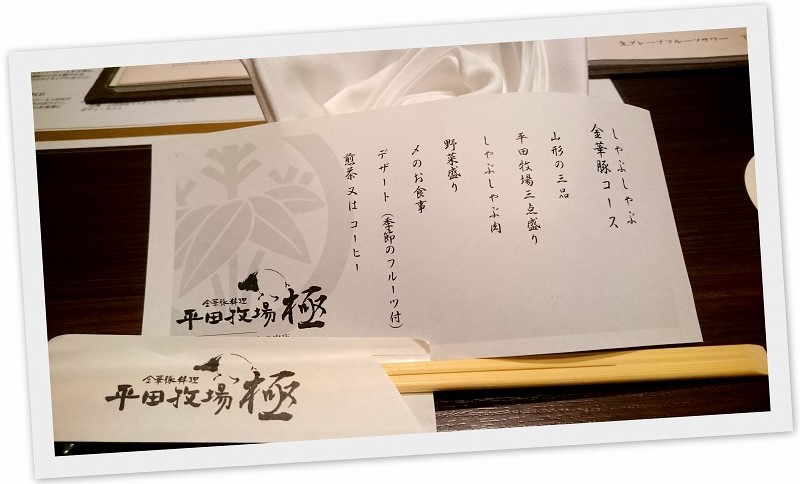 しゃぶしゃぶ
金華豚コース
山形の三品
平田牧場三点盛り
しゃぶしゃぶ肉
野菜盛り
〆のお食事
デザート(季節のフルーツ付)
煎茶又はコーヒー
金華豚料理
平田牧場 極
金華豚料理
平田牧場 極